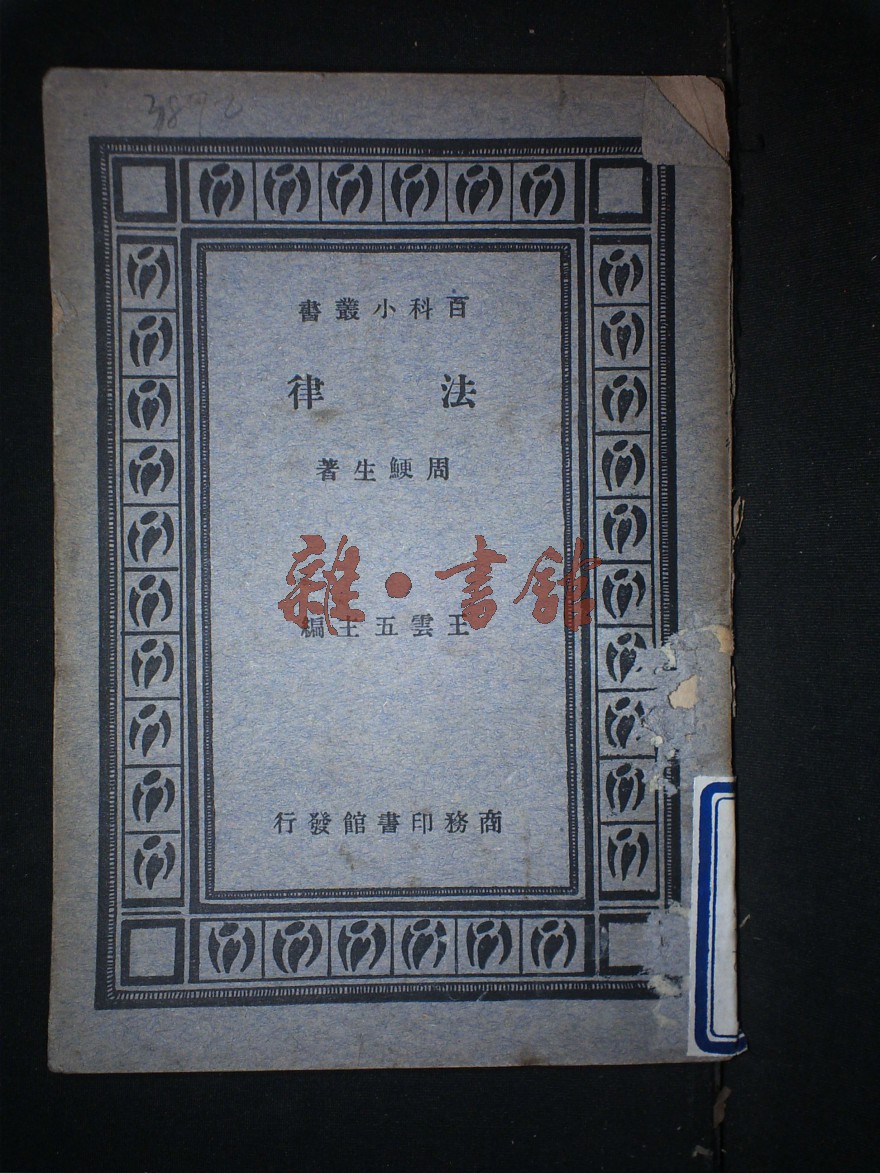 3892
百科小叢書
法律
周鯁生著
雜·書館
王雲五主編
商務印書館發行